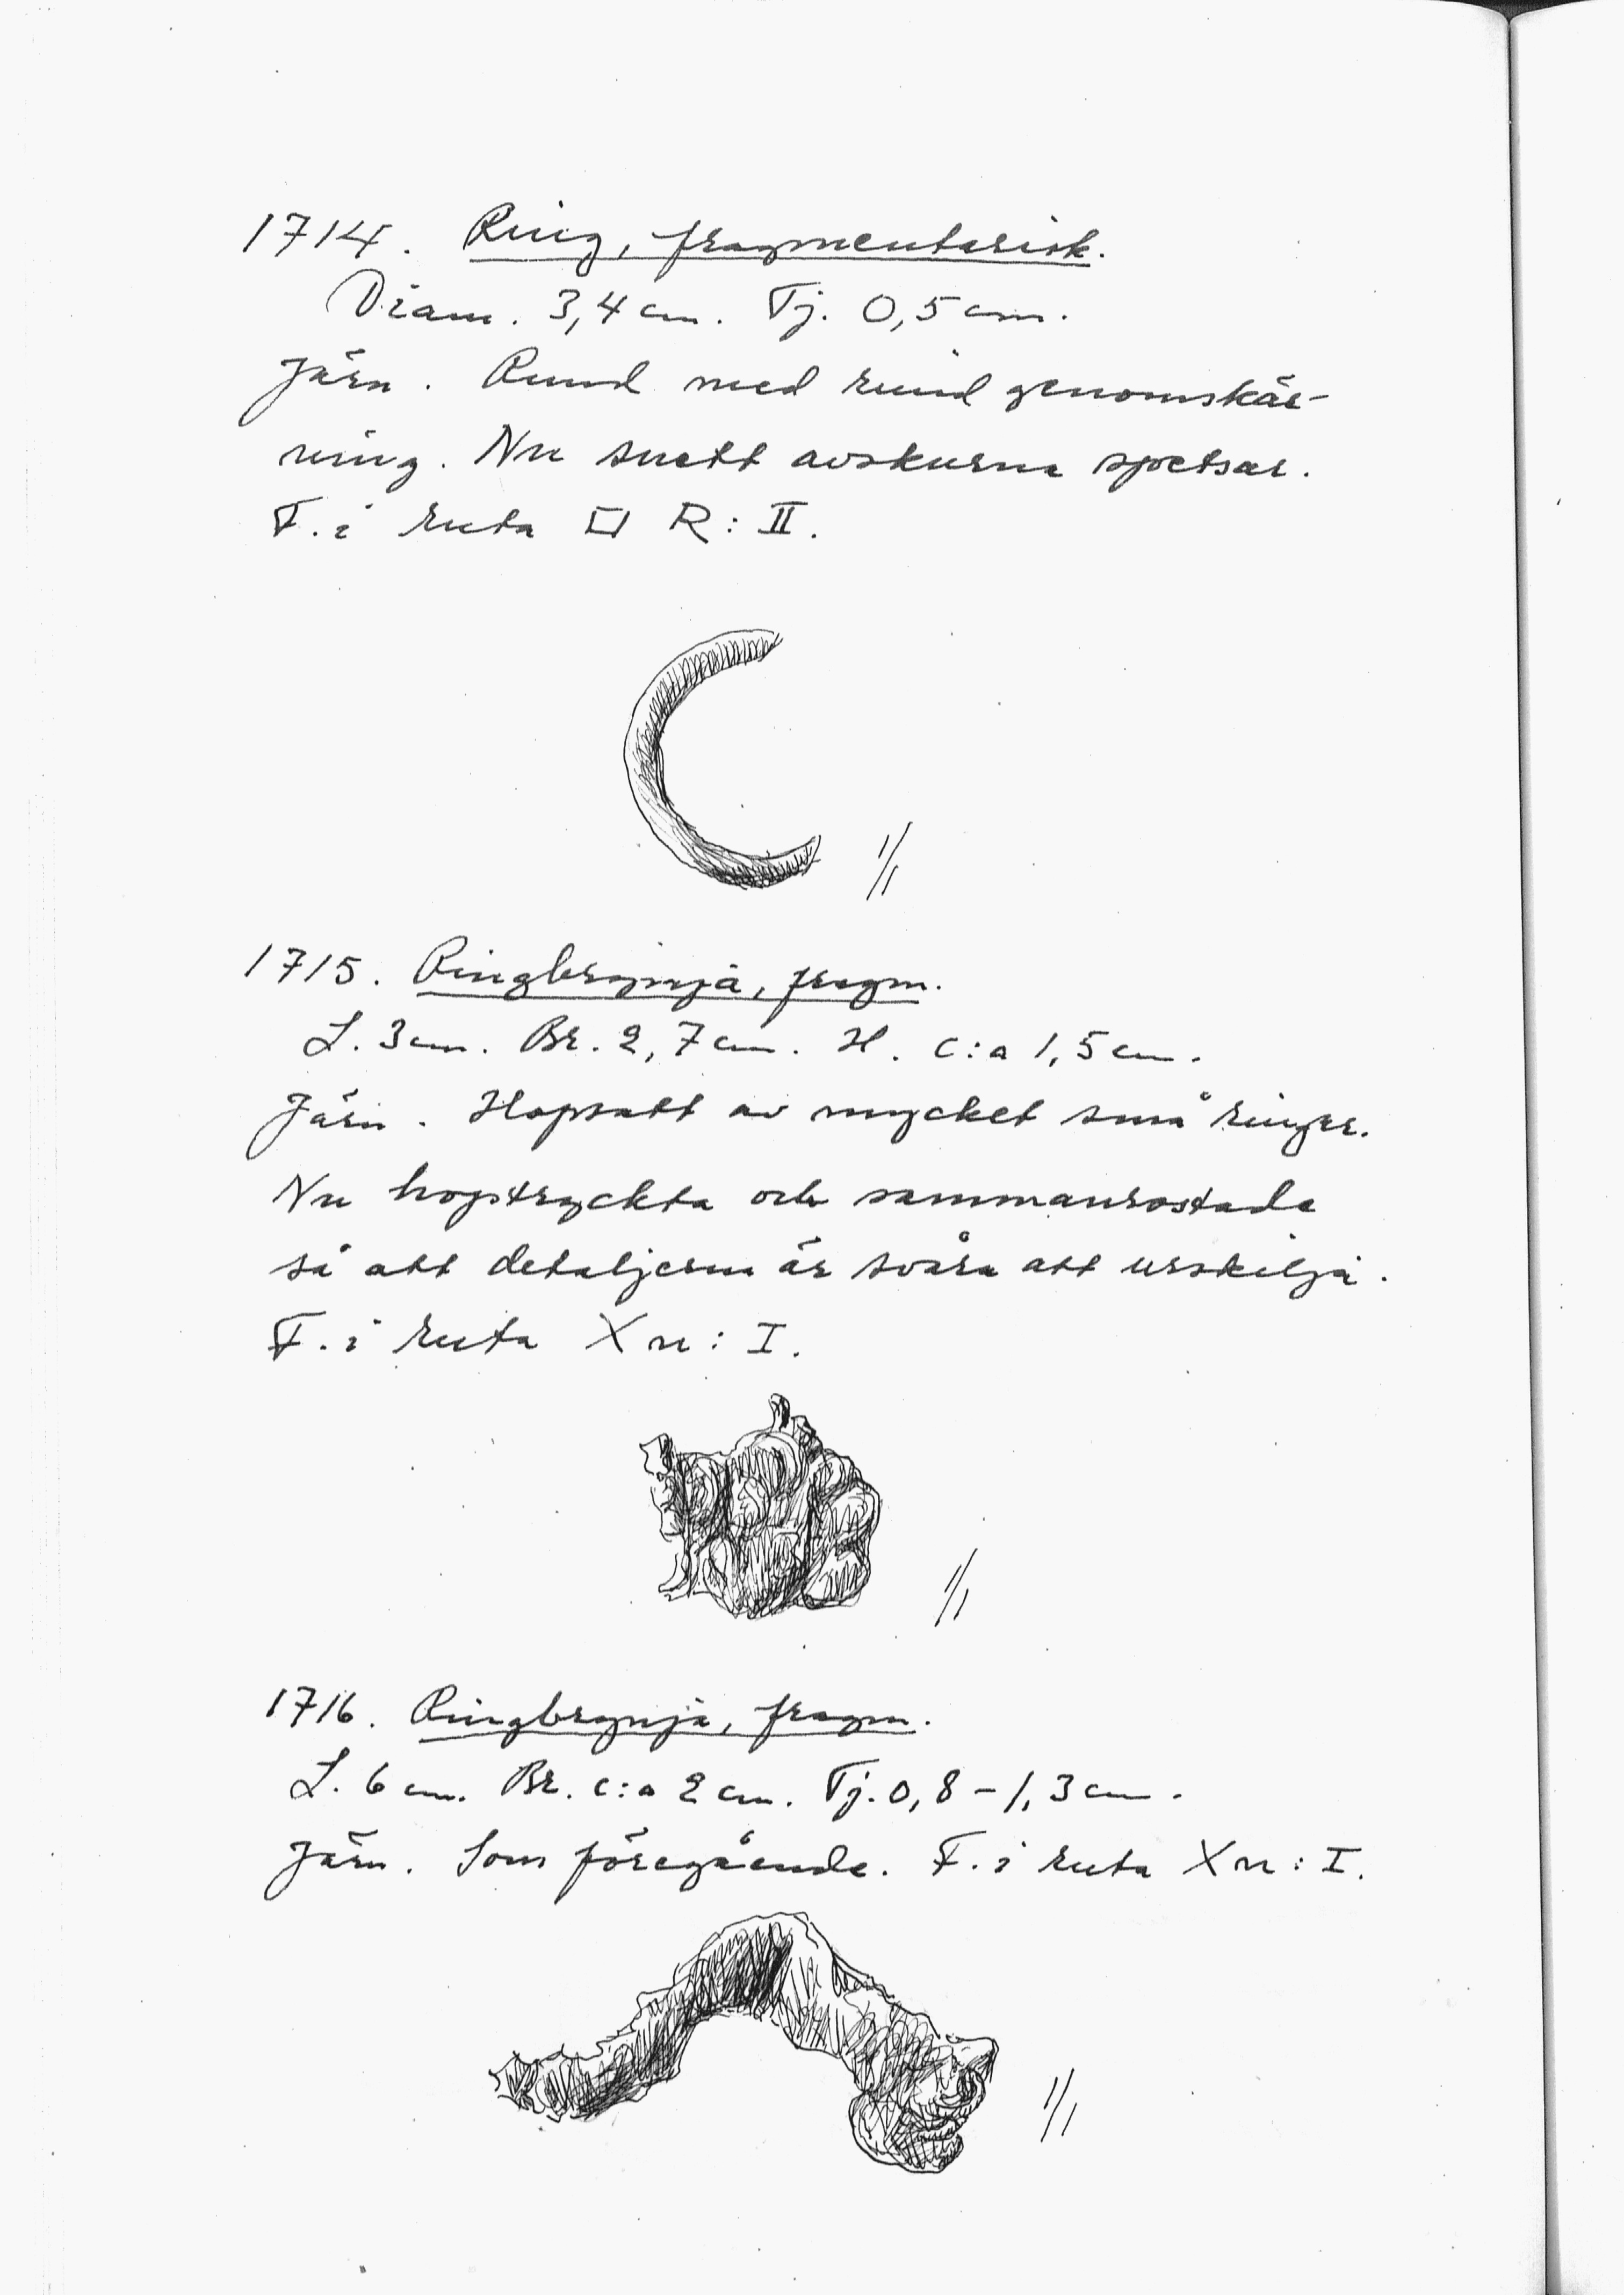 1714. Ring, fragmentarisk.
Diam. 3,4 cm. Tj. 0,5 cm.
Järn. Rund med rund genomskär-
ning. Nu snett avskurna spetsar.
F. i ruta □ R : II.
1/1
1715. Ringbrynja, fragm.
L. 3 cm. Br. 2,7 cm. H. c:a 1,5 cm.
Järn. Hopsatt av mycket små ringar.
Nu hoptryckta och sammanrostade
så att detaljerna är svåra att urskilja.
F. i ruta X n : I.
1/1
1716. Ringbrynja, fragm.
L. 6 cm. Br. c:a 2 cm. Tj. 0,8 – 1,3 cm.
Järn. Som föregående. F. i ruta X n : I.
1/1